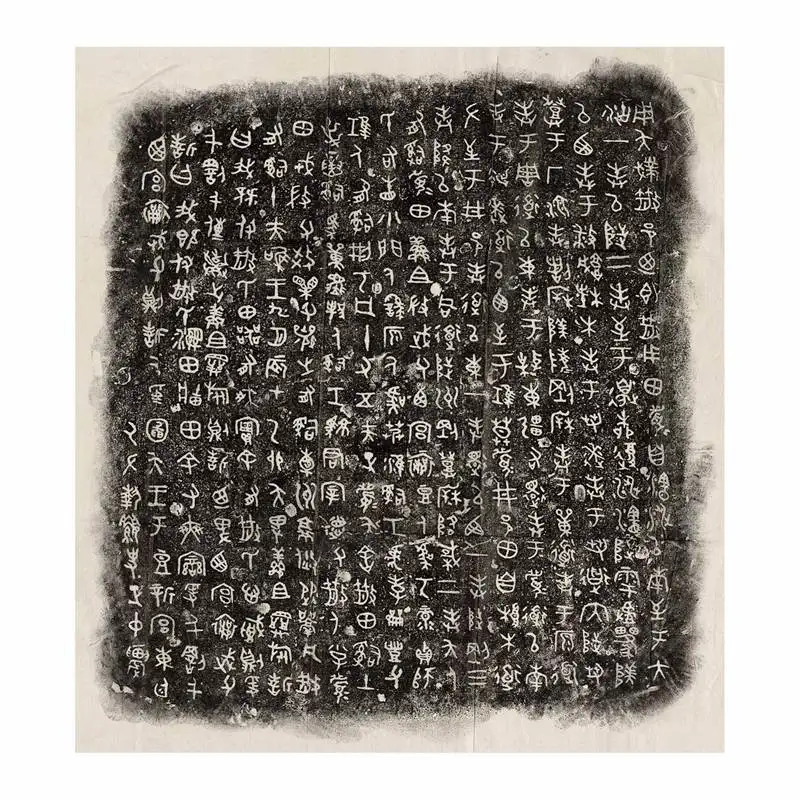 用夨散邑乃即散用田眉自瀗涉以南至于大
沽一奉以陟二奉至于邊柳復涉瀗陟雩
以西奉于播城楮木奉于芻逨奉于芻道內陟芻
登于厂湶奉割柝陵剛柝奉于單道奉于原道
奉于周道以東奉于東疆右還奉于眉道以南
奉于逨道以西至于鴻莫眉井邑田自根木道
左至于井邑奉道以東一奉還以西一奉陟剛三
奉降以南奉于同道陟州剛登柝降棫二奉夨人
有司眉田鮮且微武父西宮襄豆人虞丂彔貞師
氏右眚小門人繇原人虞艿淮司工虎孝龠豐父
鴻人有司刑丂凡十又五夫正眉夨舍散田司土
逆寅司馬單邦人司工君宰德父散人小子眉
田戎微父效果父襄之有司橐州就焂從凡散
有司十夫唯王九月辰才乙卯夨卑鮮且旅誓
曰我既付散氏田器有爽實余有散氏心賊則爰
千罰千傳棄之鮮且旅則誓乃卑西宮襄武父
誓曰我既付散氏濕田田余又爽變爰千罰千
西宮襄武父則誓厥受圖夨王于豆新宮東廷
厥左執繺史正中農